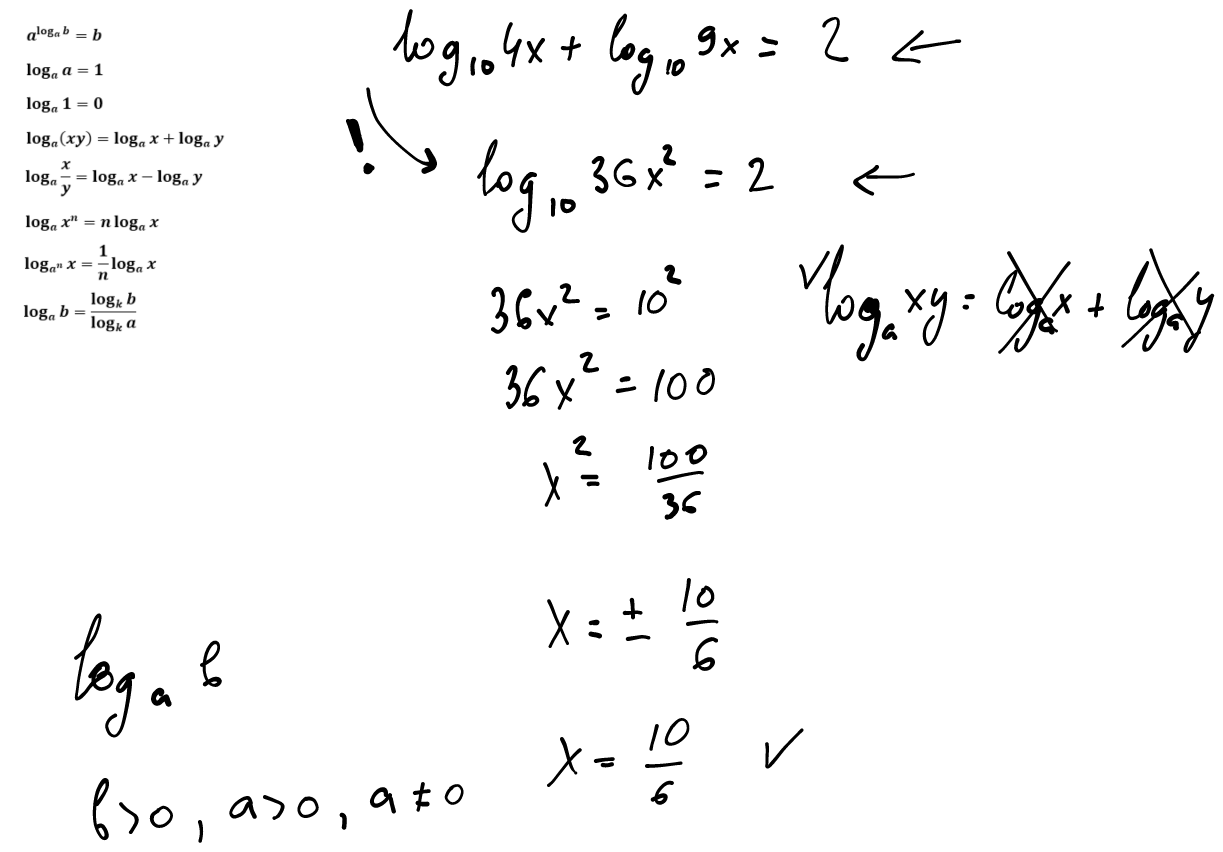 a^{log_a b} = b
log_a a = 1
log_a 1 = 0
log_a(xy) = log_a x + log_a y
log_a x/y = log_a x − log_a y
log_a x^n = n log_a x
log_{a^n} x = 1/n log_a x
log_a b = log_k b / log_k a
log_10 4x + log_10 9x = 2 ←
! log_10 36x² = 2 ←
36x² = 10²
✓ log_a xy = log_a x + log_a y
36x² = 100
x² = 100/36
x = ± 10/6
x = 10/6 ✓
log_a b
b>0, a>0, a≠0